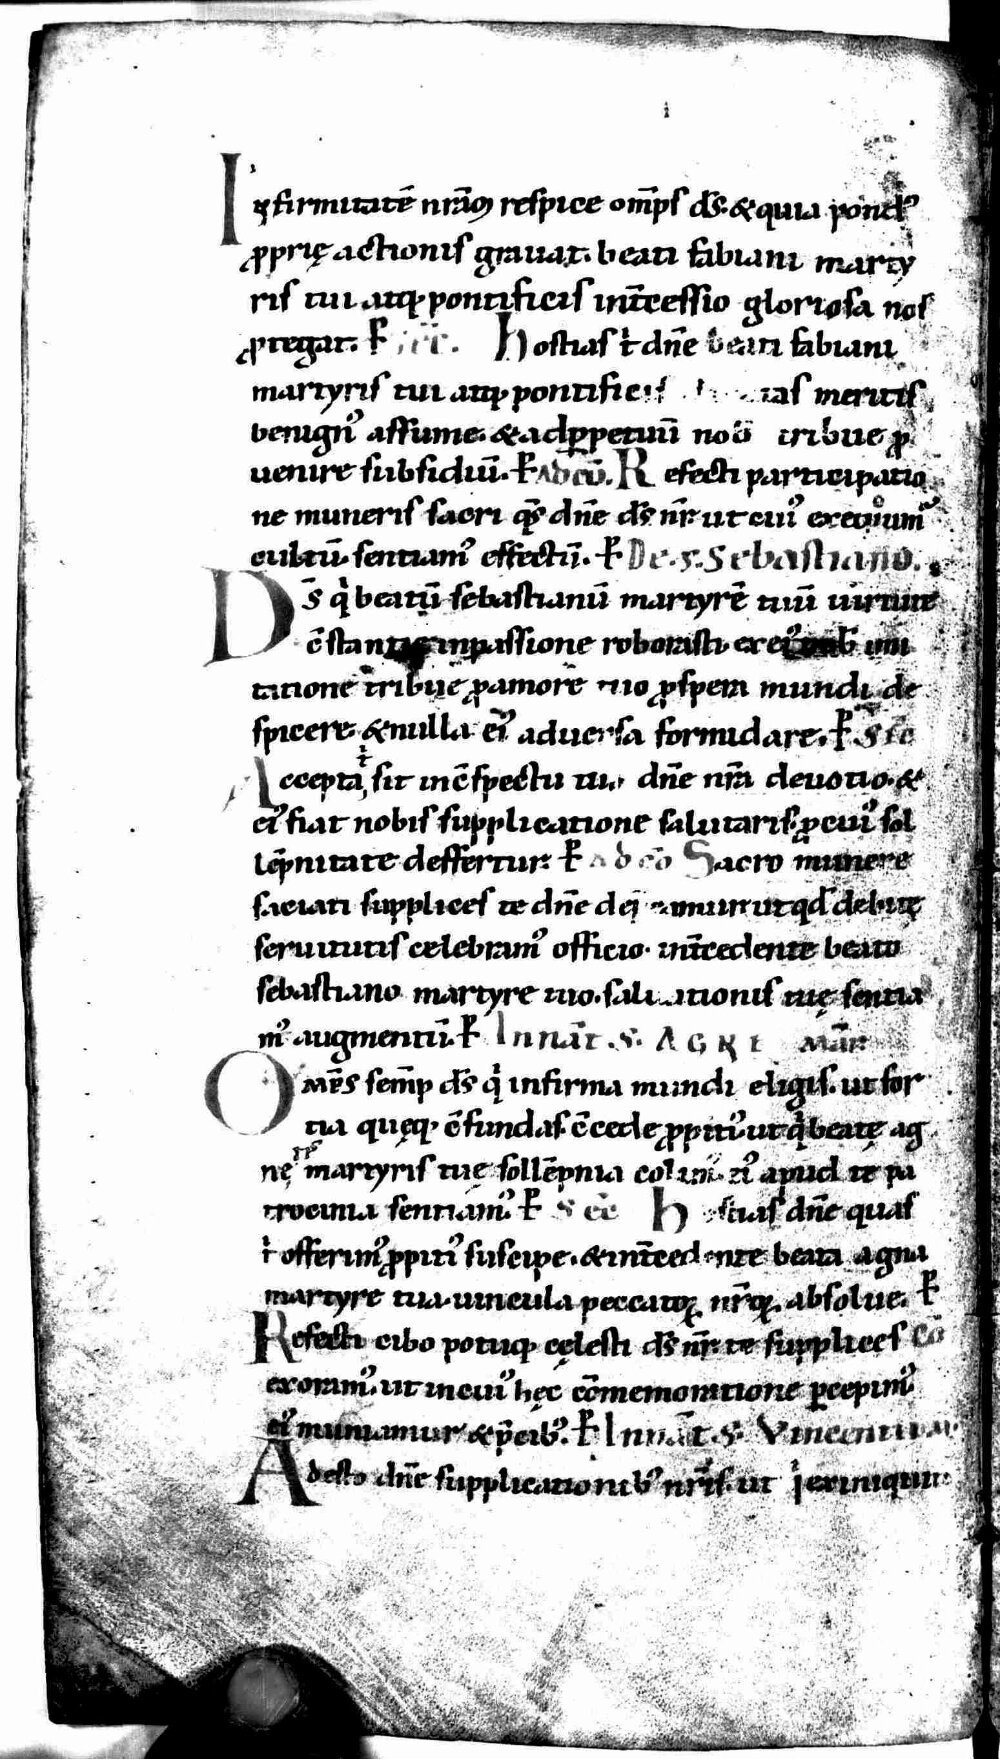 Infirmitatē nr̄am respice omp̄s ds̄. & quia pond᷒
ꝓprię actionis gravat. beati fabiani marty
ris tui atq; pontificis int̄cessio gloriosa nos
ꝓtegat. ꝑ Hostias t̄ dn̄e beati fabiani
martyris tui atq; pontificis meritis
benign᷒ assume. & adꝑpetuū nob tribue ꝓ
venire subsidiū. ꝑ AD CŌ. Refecti participatio
ne muneris sacri qs̄ dn̄e ds̄ nr̄ ut cui᷒ exequim᷒
cultū. sentiam᷒ effectū. ꝑ De. s. Sebastiano.
Ds̄ q' beatū sebastianū martyrē tuū uirtute
c̄stantię inpassione roborasti. ex ei᷒ imi
tatione tribue ꝓamore tuo ꝓspera mundi de
spicere. & nulla ei᷒ aduersa formidare. ꝑ Sec
Accepta t̄ sit inc̄spectu dn̄e nr̄a deuotio. &
ei᷒ fiat nobis supplicatione salutaris. ꝓ cui᷒ sol
lēpnitate deffertur. ꝑ ad cō Sacro munere
saciati supplices te dn̄e ut qd̄ debitę
seruitutis celebram᷒ officio. int̄cedente beato
sebastiano martyre tuo. saluationis tuę sentia
m᷒ augmentū. ꝑ In nāt. S. AGNE Mār
Omp̄s semp̄ ds̄ q' infirma mundi eligis. ut for
tia quęq; c̄fundas. c̄cede ꝓpiti᷒. ut q' beatę ag
nę martyris tuę sollēpnia colim᷒ ei᷒ apud te pa
trocinia sentiam᷒. ꝑ Sec Hostias dn̄e quas
t̄ offerim᷒ ꝓpiti᷒ suscipe. & int̄cedente beata agna
martyre tua. uincula peccatoꝝ nr̄oꝝ absolue. ꝑ
Refecti cibo potuq; cęlesti ds̄ nr̄ te supplices Cō
exoram᷒. ut in cui᷒ hęc cōmemoratione ꝑcepim᷒
ei᷒ muniamur & p̄cib᷒. ꝑ In nāt S. Vincentii
Adesto dn̄e supplicationib᷒ nr̄is. ut